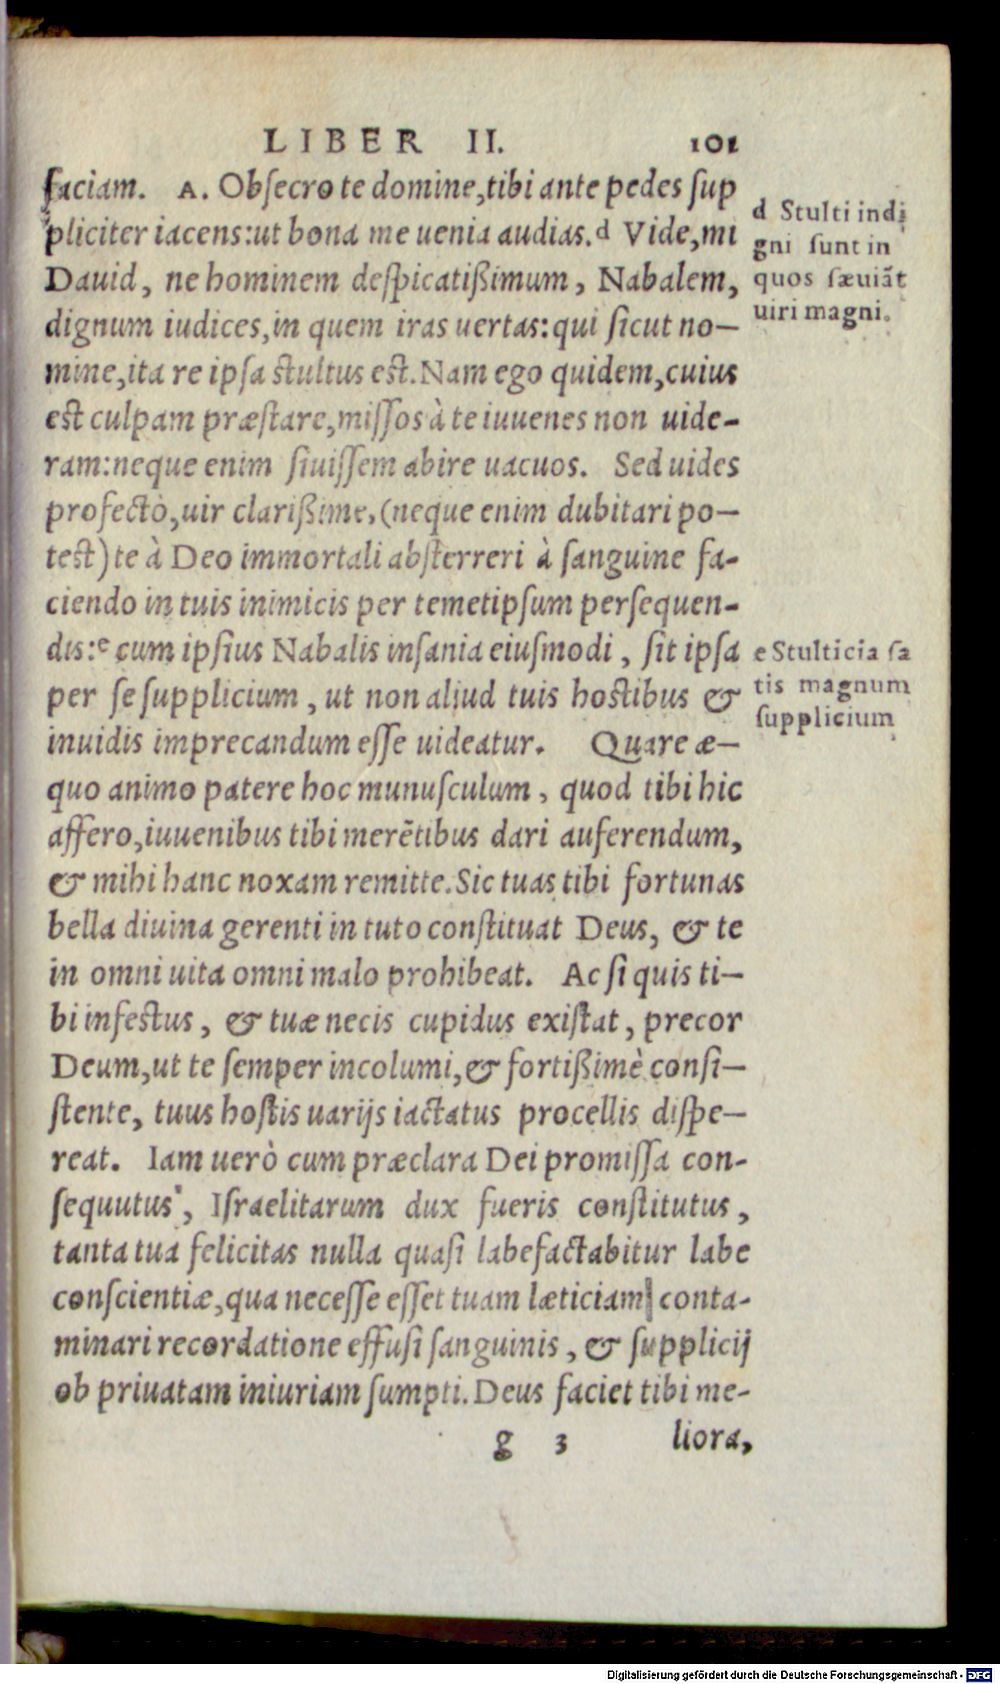 LIBER II. 101
faciam. A. Obsecro te domine, tibi ante pedes sup
pliciter iacens: ut bona me uenia audias. d Vide, mi
Dauid, ne hominem despicatißimum, Nabalem,
dignum iudices, in quem iras uertas: qui sicut no-
mine, ita re ipsa stultus est. Nam ego quidem, cuius
est culpam præstare, missos à te iuuenes non uide-
ram: neque enim siuissem abire uacuos. Sed uides
profectò, uir clarißime, (neque enim dubitari po-
test) te à Deo immortali absterreri à sanguine fa-
ciendo in tuis inimicis per temetipsum persequen-
dis: e cum ipsius Nabalis insania eiusmodi, sit ipsa
per se supplicium, ut non aliud tuis hostibus &
inuidis imprecandum esse uideatur. Quare æ-
quo animo patere hoc munusculum, quod tibi hic
affero, iuuenibus tibi merētibus dari auferendum,
& mihi hanc noxam remitte. Sic tuas tibi fortunas
bella diuina gerenti in tuto constituat Deus, & te
in omni uita omni malo prohibeat. Ac si quis ti-
bi infestus, & tuæ necis cupidus existat, precor
Deum, ut te semper incolumi, & fortißimè consi-
stente, tuus hostis uarijs iactatus procellis dispe-
reat. Iam uerò cum præclara Dei promissa con-
sequutus, Israelitarum dux fueris constitutus,
tanta tua felicitas nulla quasi labefactabitur labe
conscientiæ, qua necesse esset tuam læticiam conta-
minari recordatione effusi sanguinis, & supplicij
ob priuatam iniuriam sumpti. Deus faciet tibi me-
g 3 liora,
d Stulti indi
gni sunt in
quos sæuiāt
uiri magni.
e Stulticia sa
tis magnum
supplicium
Digitalisierung gefördert durch die Deutsche Forschungsgemeinschaft - DFG